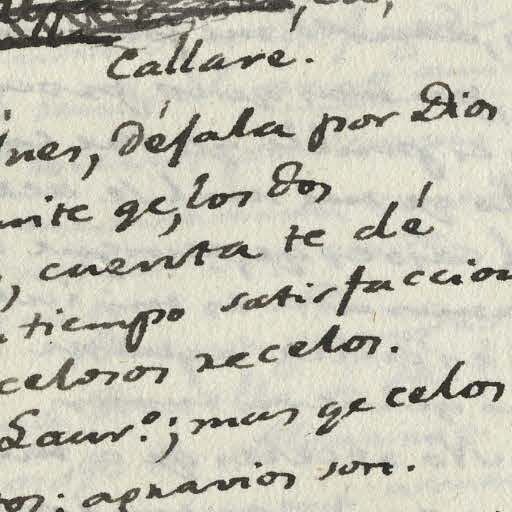 Callaré.
Ynes, déjala por Dios
mite qe, los dos
, cuenta te dé
tiempo satisfaccion
celosos recelos.
Laur.º; mas qe celos
tos: agravios son.